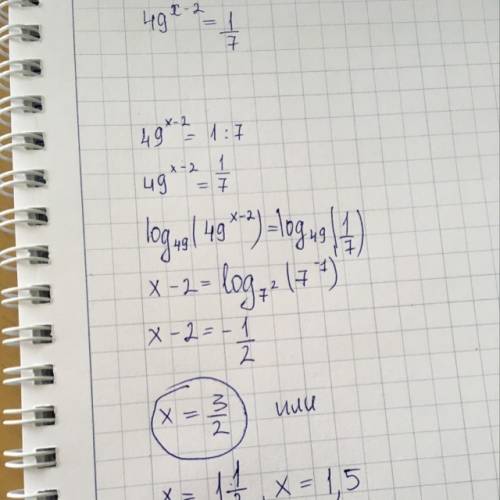 49^{x-2} = \frac{1}{7}
49^{x-2} = 1:7
49^{x-2} = \frac{1}{7}
log_{49}(49^{x-2}) = log_{49}(\frac{1}{7})
x-2 = log_{7^2}(7^{-1})
x-2 = -\frac{1}{2}
x = \frac{3}{2} или
x = 1\frac{1}{2}, x = 1,5